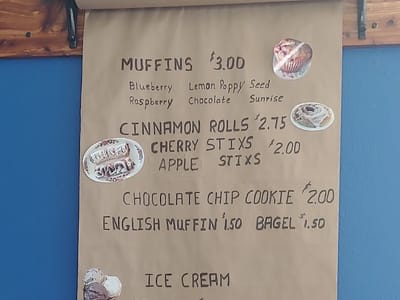 MUFFINS $3.00
Blueberry Lemon Poppy Seed
Raspberry Chocolate Sunrise
CINNAMON ROLLS $2.75
CHERRY STIXS $2.00
APPLE STIXS
CHOCOLATE CHIP COOKIE $2.00
ENGLISH MUFFIN $1.50 BAGEL $1.50
ICE CREAM